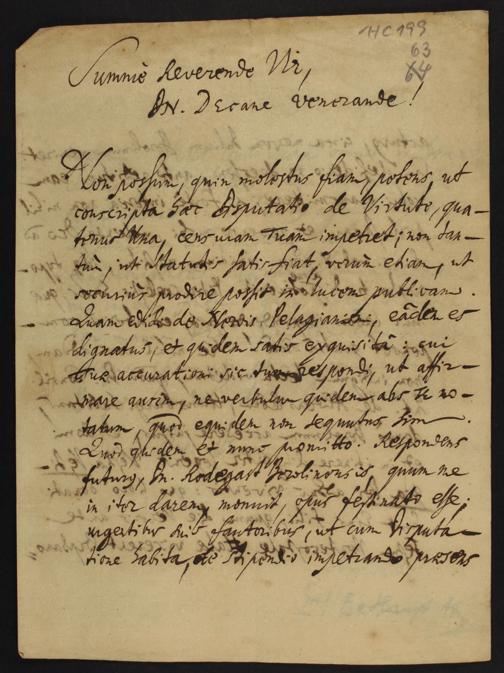 HC 199
63
64
Summè Reverende Vir,
DN. Decane venerande!
Non possum, quin molestus fiam, petens, ut
conscripta haec Disputatio de Virtute, qua-
tenus una, censuram Tuam impetret; non tan-
tùm, ut statutis satisfiat, verùm etiam, ut
securius prodire possit in lucem publicam.
Quam edidi de Nervis Pelagianis, eâdem es
dignatus, et quidem satis exquisitâ: cui
Tuae accurationi sic respondi, ut affir-
mare ausim, ne verbulum quidem abs Te no-
tatum, quod equidem non sequutus sim.
Quod quidem et nunc promitto. Respondens
futurus, Dn. Rodegast Berolinensis, quum me
in iter darem, monuit, opus festinato esse,
urgentibus suis fautoribus, ut cum disputa-
tione habita, de stipendio impetrando praesens